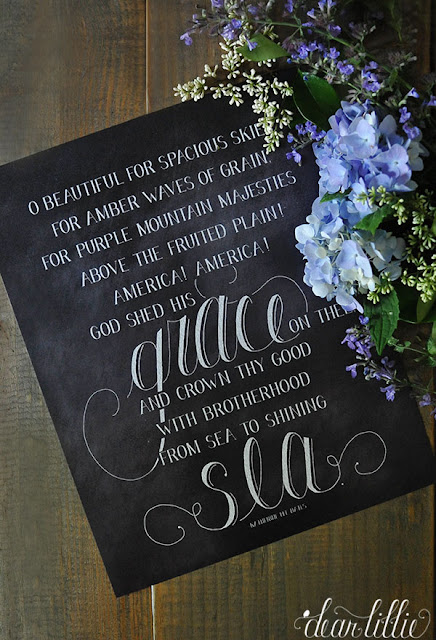 O BEAUTIFUL FOR SPACIOUS SKIE
FOR AMBER WAVES OF GRAIN.
FOR PURPLE MOUNTAIN MAJESTIES
ABOVE THE FRUITED PLAIN!
AMERICA! AMERICA!
GOD SHED HIS
grace ON THE
AND CROWN THY GOOD
WITH BROTHERHOOD
FROM SEA TO SHINING
sea.
dear lillie